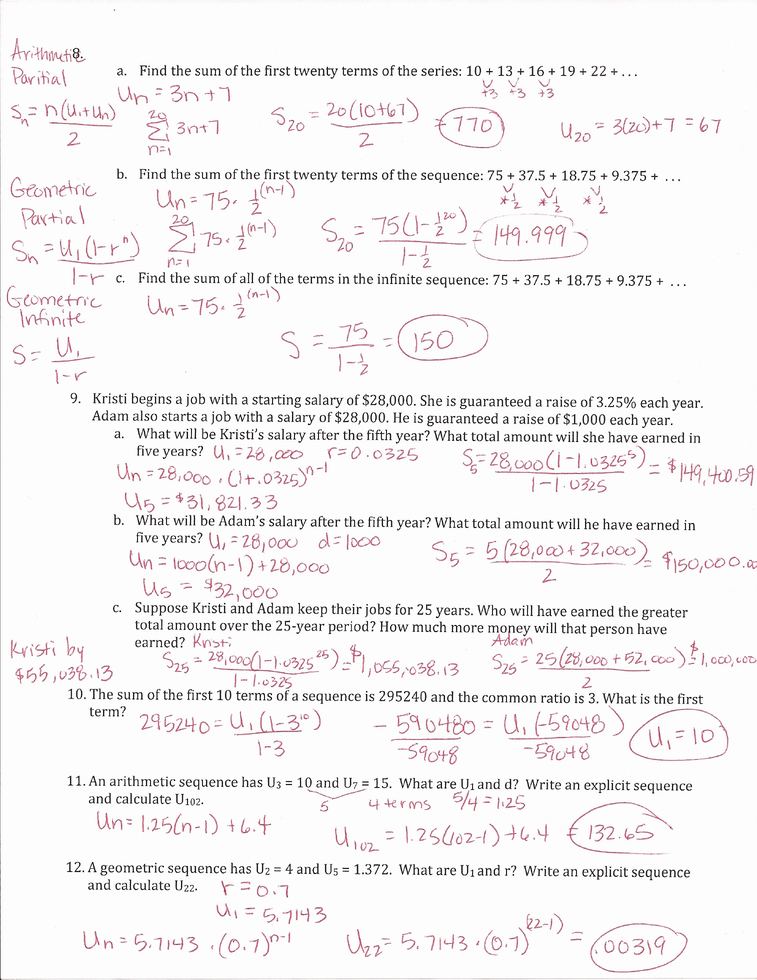 Arithmetic 8.
Paritial
a. Find the sum of the first twenty terms of the series: 10 + 13 + 16 + 19 + 22 + . . .
+3 +3 +3
Un = 3n+7
Sn = n(U1+Un) / 2
20 Σ n=1 3n+7
S20 = 20(10+67) / 2 = 770
U20 = 3(20)+7 = 67
b. Find the sum of the first twenty terms of the sequence: 75 + 37.5 + 18.75 + 9.375 + . . .
*1/2 *1/2 *1/2
Geometric
Partial
Un = 75 · 1/2^(n-1)
Sn = U1(1-r^n) / 1-r
20 Σ n=1 75 · 1/2^(n-1)
S20 = 75(1-1/2^20) / 1-1/2 = 149.999
c. Find the sum of all of the terms in the infinite sequence: 75 + 37.5 + 18.75 + 9.375 + . . .
Geometric
Infinite
Un = 75 · 1/2^(n-1)
S = U1 / 1-r
S = 75 / 1-1/2 = 150
9. Kristi begins a job with a starting salary of $28,000. She is guaranteed a raise of 3.25% each year.
Adam also starts a job with a salary of $28,000. He is guaranteed a raise of $1,000 each year.
a. What will be Kristi's salary after the fifth year? What total amount will she have earned in
five years? U1 = 28,000 r = 0.0325
S5 = 28,000(1-1.0325^5) / 1-1.0325 = $149,400.59
Un = 28,000 · (1+.0325)^n-1
U5 = $31,821.33
b. What will be Adam's salary after the fifth year? What total amount will he have earned in
five years? U1 = 28,000 d = 1000
S5 = 5(28,000+32,000) / 2 = $150,000.00
Un = 1000(n-1)+28,000
U5 = $32,000
c. Suppose Kristi and Adam keep their jobs for 25 years. Who will have earned the greater
total amount over the 25-year period? How much more money will that person have
earned? Kristi Adam
Kristi by
$55,038.13
S25 = 28,000(1-1.0325^25) / 1-1.0325 = $1,055,038.13
S25 = 25(28,000+52,000) / 2 = $1,000,000
10. The sum of the first 10 terms of a sequence is 295240 and the common ratio is 3. What is the first
term?
295240 = U1(1-3^10) / 1-3
-590480 / -59048 = U1(-59048) / -59048
U1 = 10
11. An arithmetic sequence has U3 = 10 and U7 = 15. What are U1 and d? Write an explicit sequence
and calculate U102. 5 4 terms 5/4 = 1.25
Un = 1.25(n-1) + 6.4
U102 = 1.25(102-1) + 6.4 = 132.65
12. A geometric sequence has U2 = 4 and U5 = 1.372. What are U1 and r? Write an explicit sequence
and calculate U22. r = 0.7
U1 = 5.7143
Un = 5.7143 · (0.7)^n-1
U22 = 5.7143 · (0.7)^(22-1) = .00319